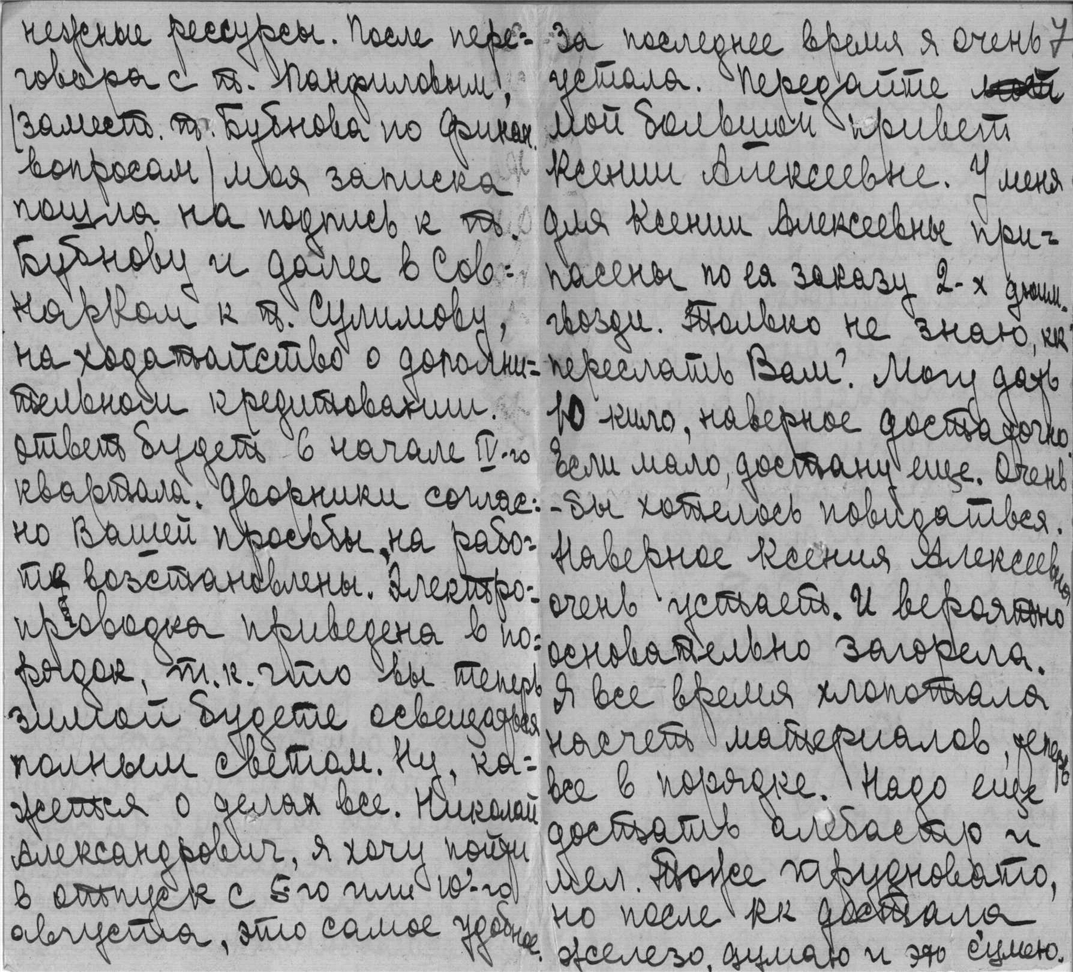 нежные рессурсы. После пере=
говора с т. Панфиловым,
(заместь. т. Бубнова по финан.
вопросам) моя записка
пошла на подпись к т.
Бубнову и далее в Сов=
нарком к т. Сулимову,
на ходатайство о дополни=
тельном кредитовании.
ответ будет в начале IV-го
квартала. Дворники соглас=
но Вашей просьбы, на рабо=
те возстановлены. Электро=
проводка приведена в по=
рядок, т.к. что вы теперь
зимой будете освещаться
полным светом. Ну, ка=
жется о делах все. Николай
Александрович, я хочу пойти
в отпуск с 5-го или 10-го
августа, это самое удобное.
7
За последнее время я очень
устала. Передайте
мой большой привет
Ксении Алексеевне. У меня
для Ксении Алексеевны при=
пасены по ея заказу 2-х дюйм.
гвозди. Только не знаю, как
переслать Вам? Могу дать
10 кило, наверное достаточно
если мало, достану еще. Очень
-бы хотелось повидаться.
Наверное Ксения Алексеевна
очень устает. И вероятно
основательно загорела.
Я все время хлопотала
насчет материалов, теперь
все в порядке. Надо еще
достать алебастр и
мел. Тоже трудновато,
но после как достала
железо, думаю и это сумею.